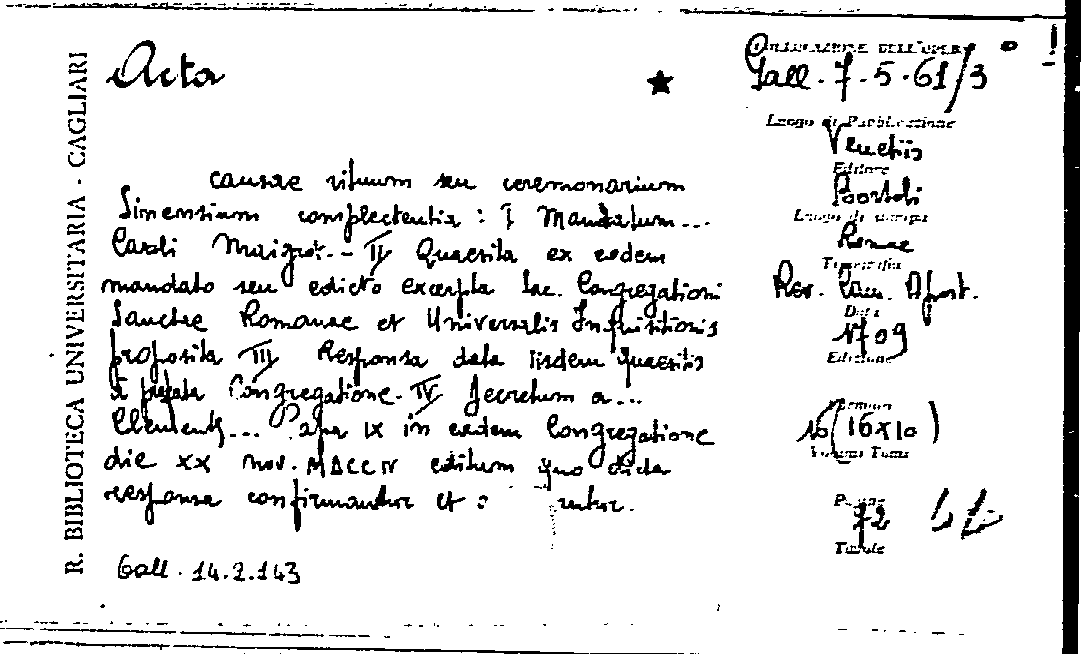 R. BIBLIOTECA UNIVERSITARIA - CAGLIARI
Acta
★
causae rituum seu ceremonarium
Sinensium complectentia: I Mandatum...
Caroli Maigrot... II Quaesita ex eodem
mandato seu edicto excerpta Sac. Congregationi
Sanctae Romanae et Universalis Inquisitionis
proposita III Responsa data iisdem quaesitis
a prefata Congregatione. IV Decretum a...
Clemente... Papa IX in eadem Congregatione
die XX nov. MDCCIV editum quo dicta
responsa confirmantur et
Gall. 14.2.143
COLLOCAZIONE DELL'OPERA
Gall. 7.5.61/3
Luogo di Pubblicazione
Venetiis
Editore
Bortoli
Luogo di stampa
Romae
Tipografia
Rev. Cam. Apost.
Data
1709
Edizione
Formato
16 (16x10)
Volume Tomo
Pagine
72
Tavole